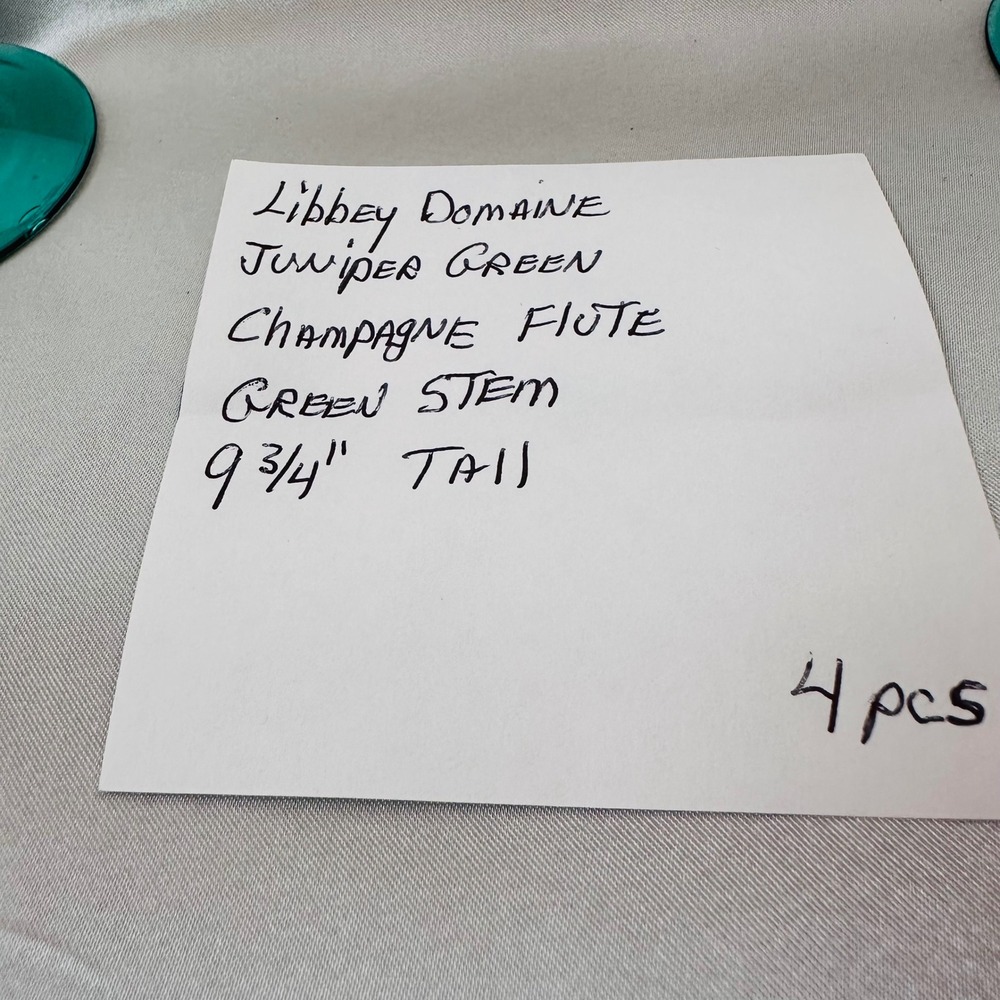 Libbey Domaine
Juniper Green
Champagne Flute
Green Stem
9 3/4" Tall
4 pcs